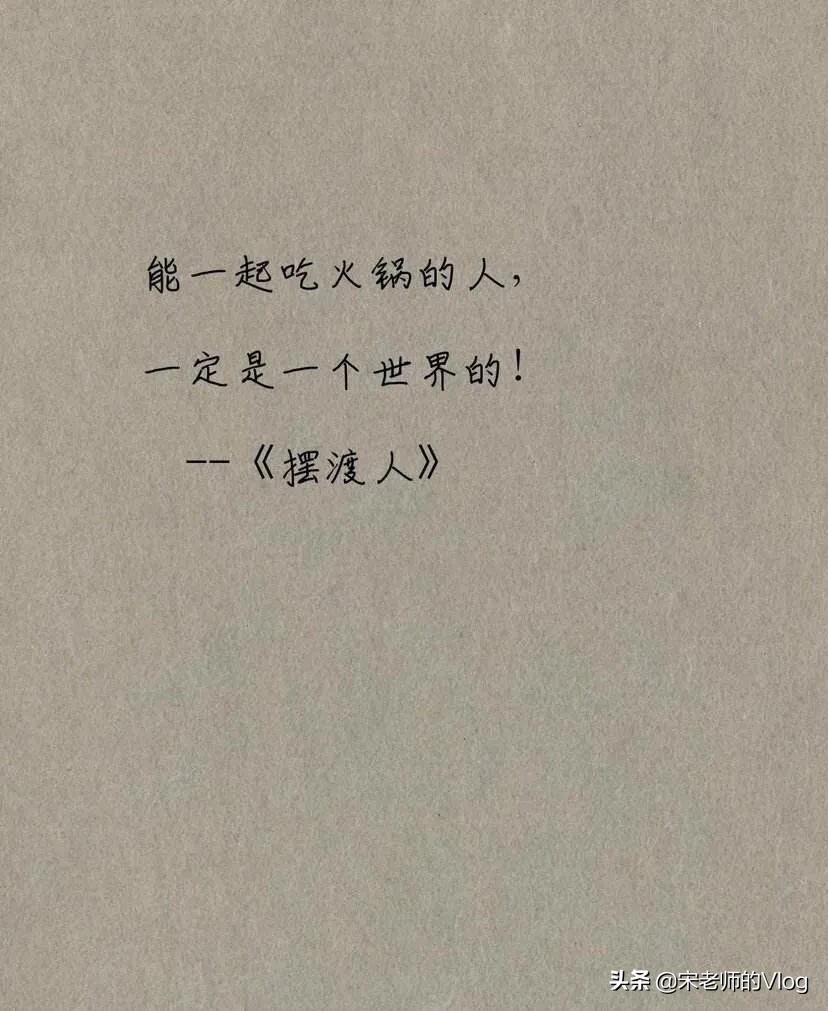 能一起吃火锅的人，
一定是一个世界的！
--《摆渡人》
头条 @宋老师的Vlog